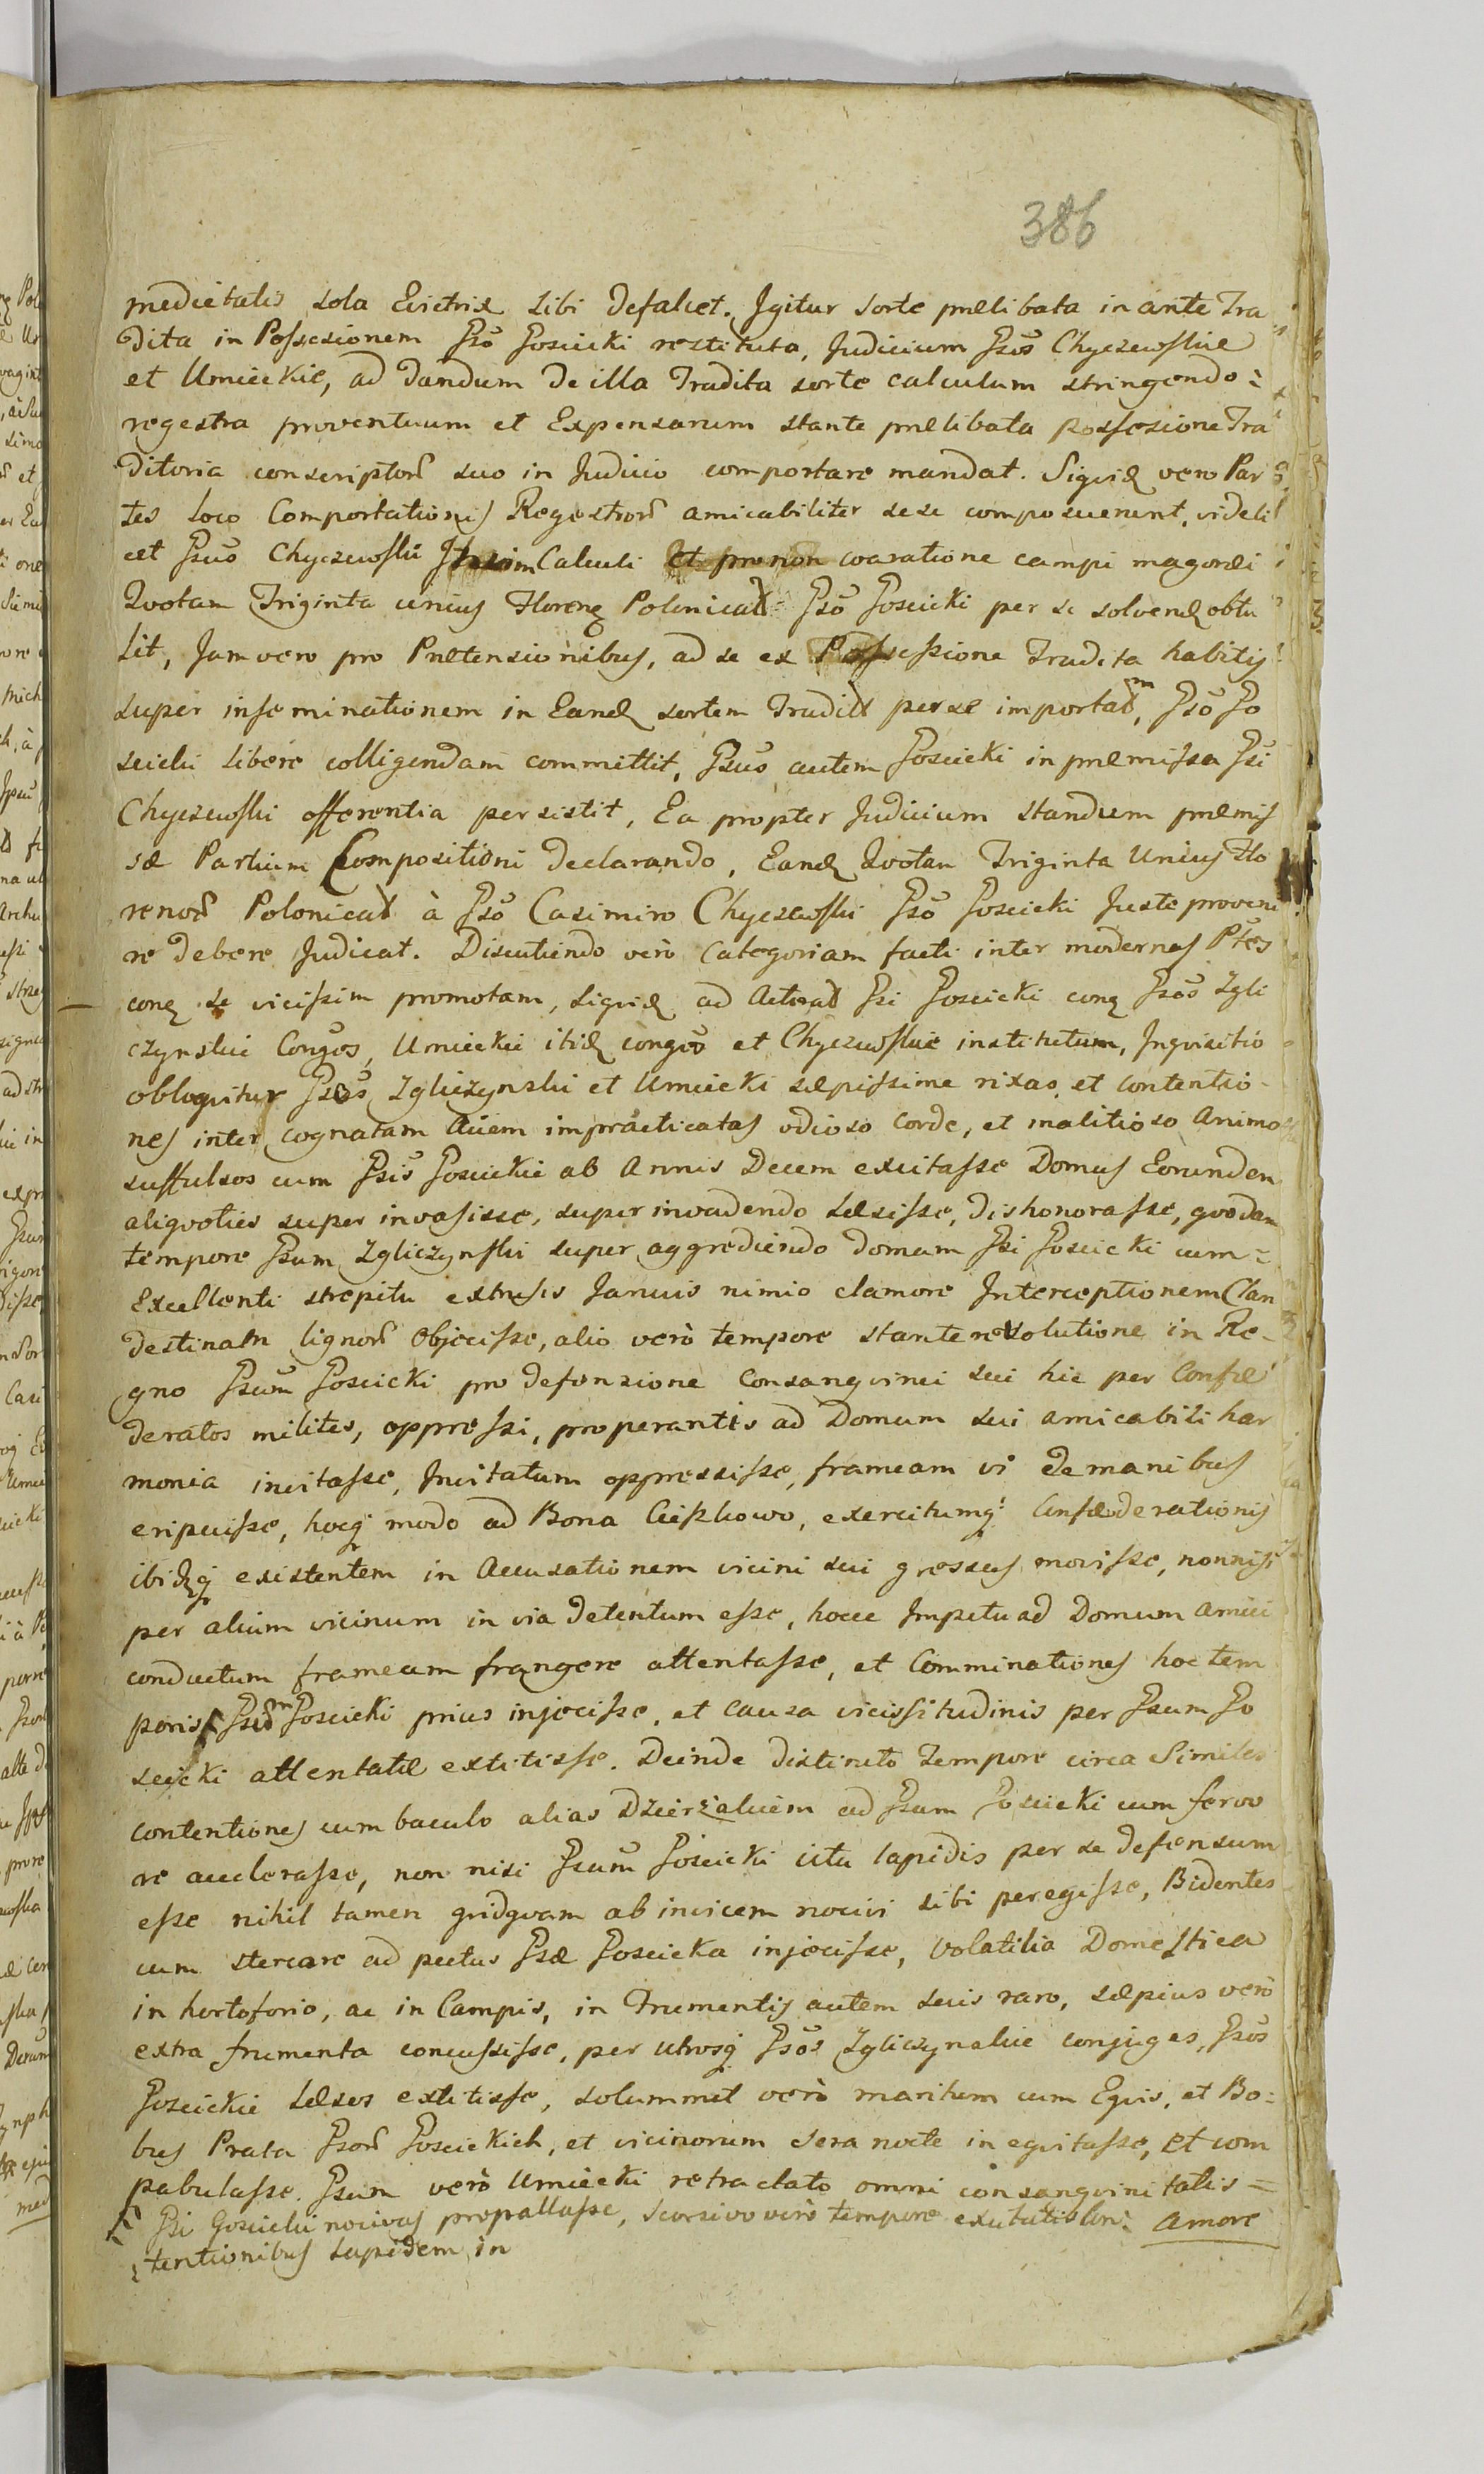 386
medietatis sola Evictrix sibi defalcet. Igitur sorte prælibata in ante Tra
dita in Possesionem Gso Gosciicki restituta, Judicium Gsos Chyczewskie
et Umieckie, ad dandum de illa Tradita sorte calculum stringendo =
regestra proventuum et Expensarum stante prælibata possesione Tra
ditoria conscriptorū suo in Judicio comportare mandat. Siquid vero Par
tes loco Comportationis Regestrorū amicabiliter sese composuerunt, videli
cet Gsus Chyczewski Calculi et pro non coaratione campi magordi
Quotam Triginta unius Floreng Polonical Gso Goscicki per se solvend obtu
lit, Jam vero pro Prætensionibus, ad se ex Possessione Tradita habitis
super inseminationem in Eand sortem Tradit per se importatm, Gso Go
scicki libere colligendam committit, Gsus autem Goscicki in præmissa Gsi
Chyczewski offerentia persistit, Ea propter Judicium standum præmis
sæ Partium Compositioni declarando, Eand Quotam Triginta Unius Flo
renorū Polonical à Gso Casimiro Chyczewski Gso Goscicki Juste proveni
re debere Judicat. Discutiendo verò Categoriam facti inter modernas Ptes
cong se vicissim promotam, siquid ad Actorat Gsi Goscicki cong Gsos Zgli
czynskie Congos, Umieckie itid congos et Chyczewskie institutum, Inquisitio
obloquitur Gsos Zgliczynski et Umiecki sæpissime rixas et contentio
nes inter cognatam Aciem impracticatas odioso corde, et malitioso animo
suffulsos cum Gsis Goscickie ab Annis Decem excitasse Domus Eorundem
aliquoties super invasisse, super invadendo læsisse, dishonorasse, quodam
tempore Gsum Zgliczynski super aggrediendo domum Gsi Goscicki cum =
Excellenti strepitu extrusis Januis nimio clamore Interceptionem Clan
destinam lignorū Objecisse, alio verò tempore stante revolutione in Re-
gno Gsum Goscicki pro defensione Consangvinei sui hic per Confæ
deratos milites, oppressi, properantis ad Domum sui amicabili har
monia invitasse, Invitatum oppressisse, frameam vi de manibus
eripuisse, hocq modo ad Bona Cieszkowo, exercitumq Confæderationis
ibidq existentem in Accusationem vicini sui gressus movisse, nonnisi
per alium vicinum in via detentum esse, hocce Impetu ad Domum amici
conductum frameam frangere attentasse, et Comminationes hoc tem
poris Gsum Goscicki prius injecisse, et causa vicissitudinis per Gsum Go
scicki attentatæ extitisse. Deinde distincto Tempore circa Similes
contentiones cum baculo alias Dzierzakiem ad Gsum Goscicki cum fervo
re accelerasse, non nisi Gsum Goscicki ictu lapidis per se defensum
esse nihil tamen quidquam ab invicem nocivi sibi peregisse, Bidentes
cum stercore ad pectus Gsæ Goscicka injecisse, Volatilia Domestica
in hortoforio, ac in Campis, in Frumentis autem suis raro, sæpius verò
extra frumenta concussisse, per utrosq Gsos Zgliczynskie conjuges, Gsos
Goscickie læsos extitisse, solummet verò maritum cum Equis, et Bo=
bus Prata Gsorū Goscickich, et vicinorum sera nocte inequitasse, et com
pabulasse. Gsum verò Umiecki retractato omni consanguinitatis =
Gsi Goscicki nocivas propallasse, scorsivo verò tempore excitatis Con: amore
tentionibus lapidem in